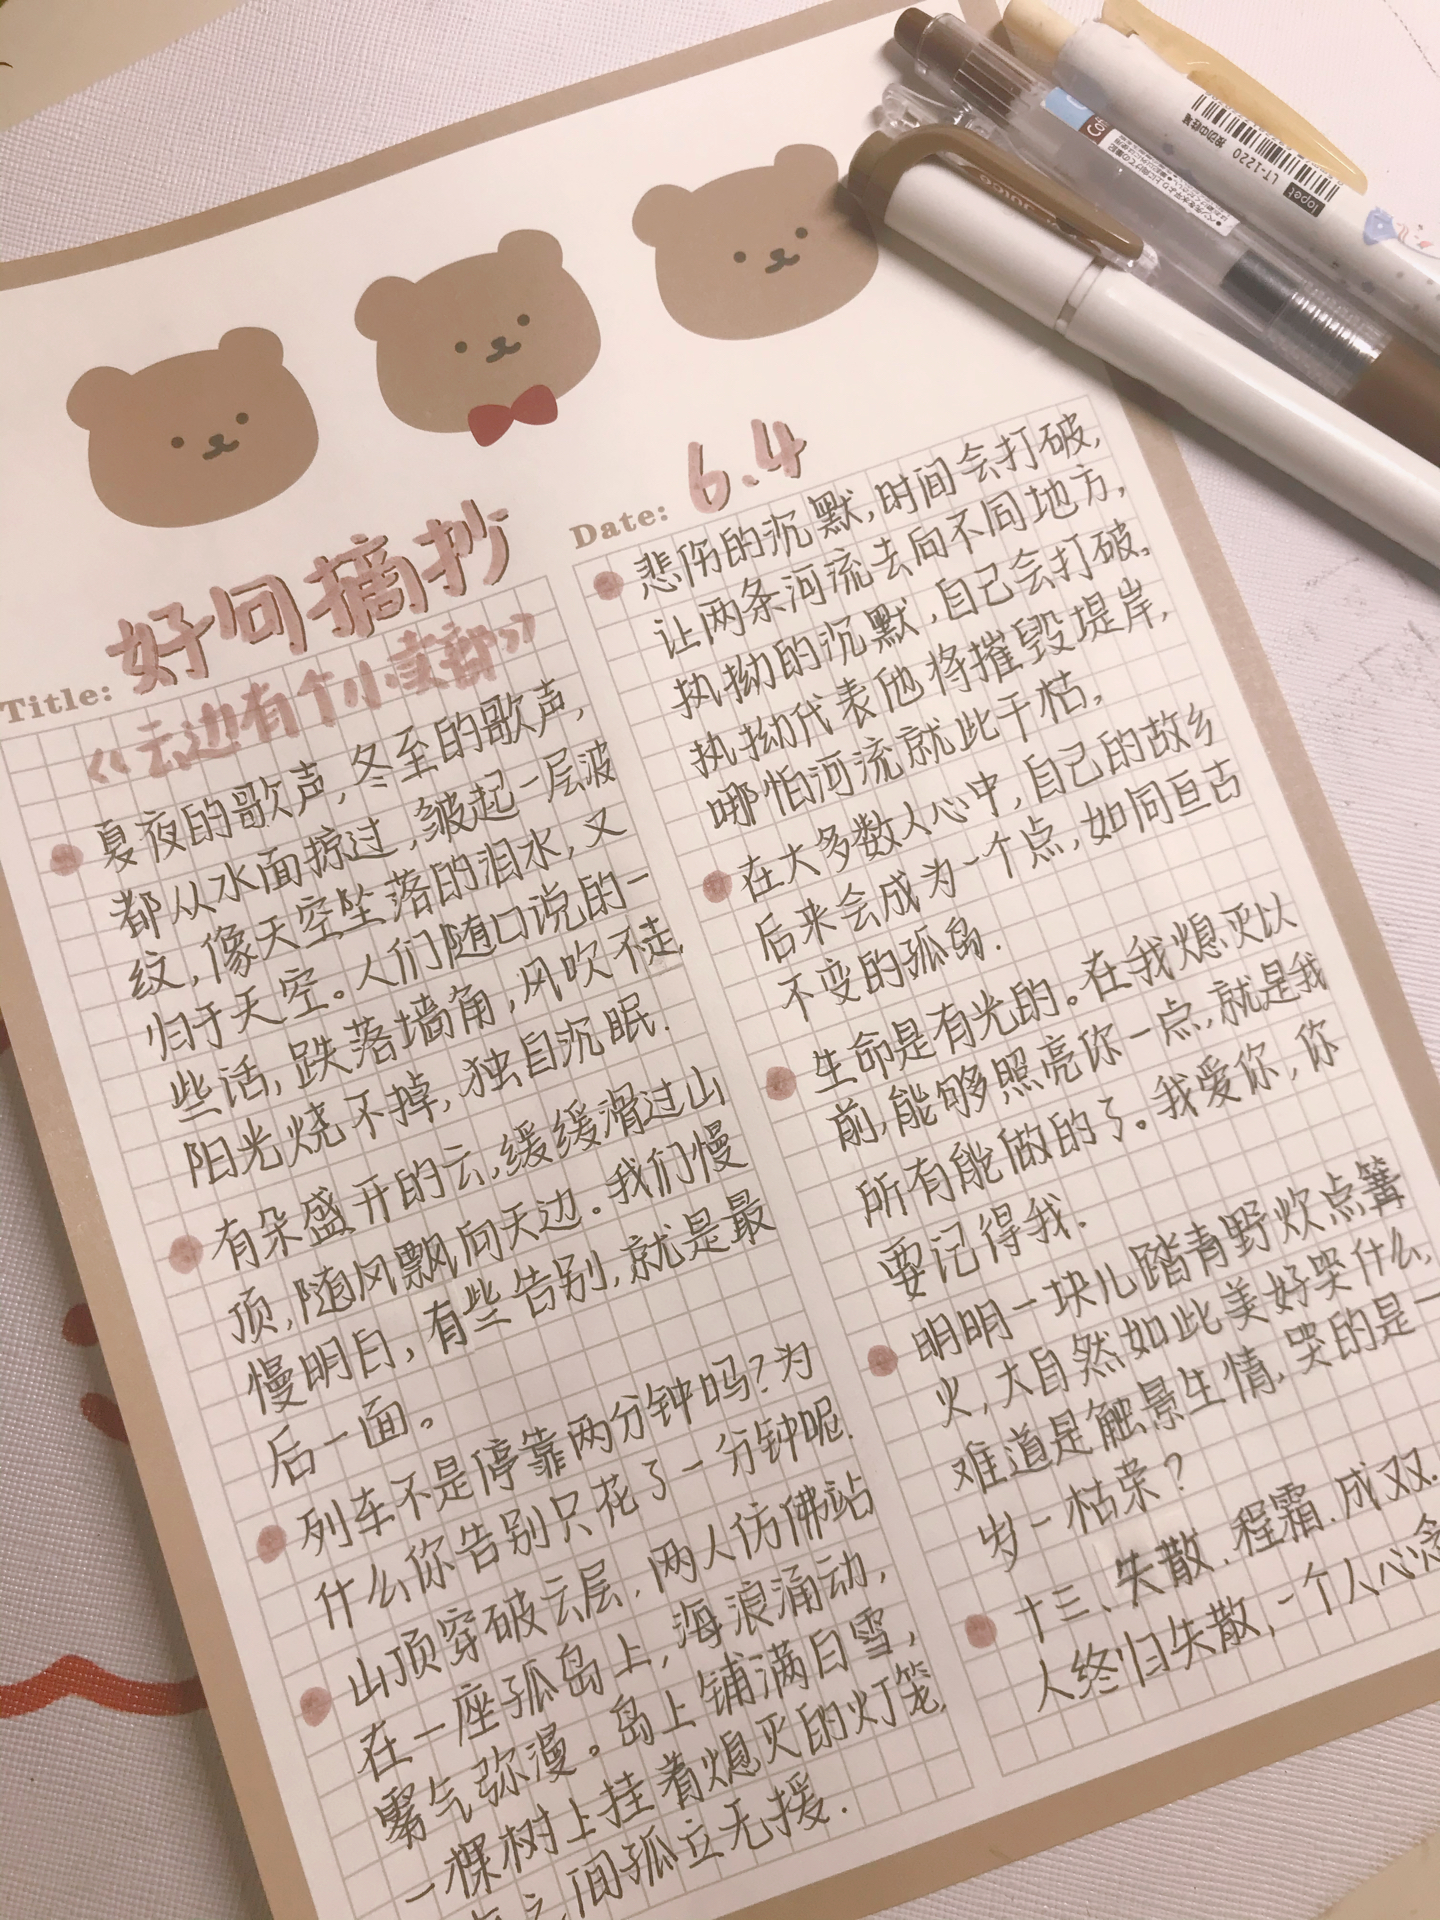 Title: 好句摘抄
《云边有个小卖部》
夏夜的歌声,冬至的歌声,
都从水面掠过,皱起一层波
纹,像天空坠落的泪水,又
归于天空。人们随口说的一
些话,跌落墙角,风吹不走,
阳光烧不掉,独自沉眠.
有朵盛开的云,缓缓滑过山
顶,随风飘向天边.我们慢
慢明白,有些告别,就是最
后一面。
列车不是停靠两分钟吗?为
什么你告别只花了一分钟呢.
山顶穿破云层,两人仿佛站
在一座孤岛上,海浪涌动,
雾气弥漫。岛上铺满白雪,
一棵树上挂着熄灭的灯笼,
之间孤立无援.
Date: 6.4
悲伤的沉默,时间会打破,
让两条河流去向不同地方,
执拗的沉默,自己会打破。
执拗代表他将摧毁堤岸,
哪怕河流就此干枯。
在大多数人心中,自己的故乡
后来会成为一个点,如同亘古
不变的孤岛.
生命是有光的。在我熄灭以
前,能够照亮你一点,就是我
所有能做的了。我爱你,你
要记得我.
明明一块儿踏青野炊点篝
火,大自然如此美好哭什么,
难道是触景生情,哭的是一
岁一枯荣?
十三、失散.程霜.成双.
人终归失散,一个人心念
lopet
LT-1220
按动中性笔